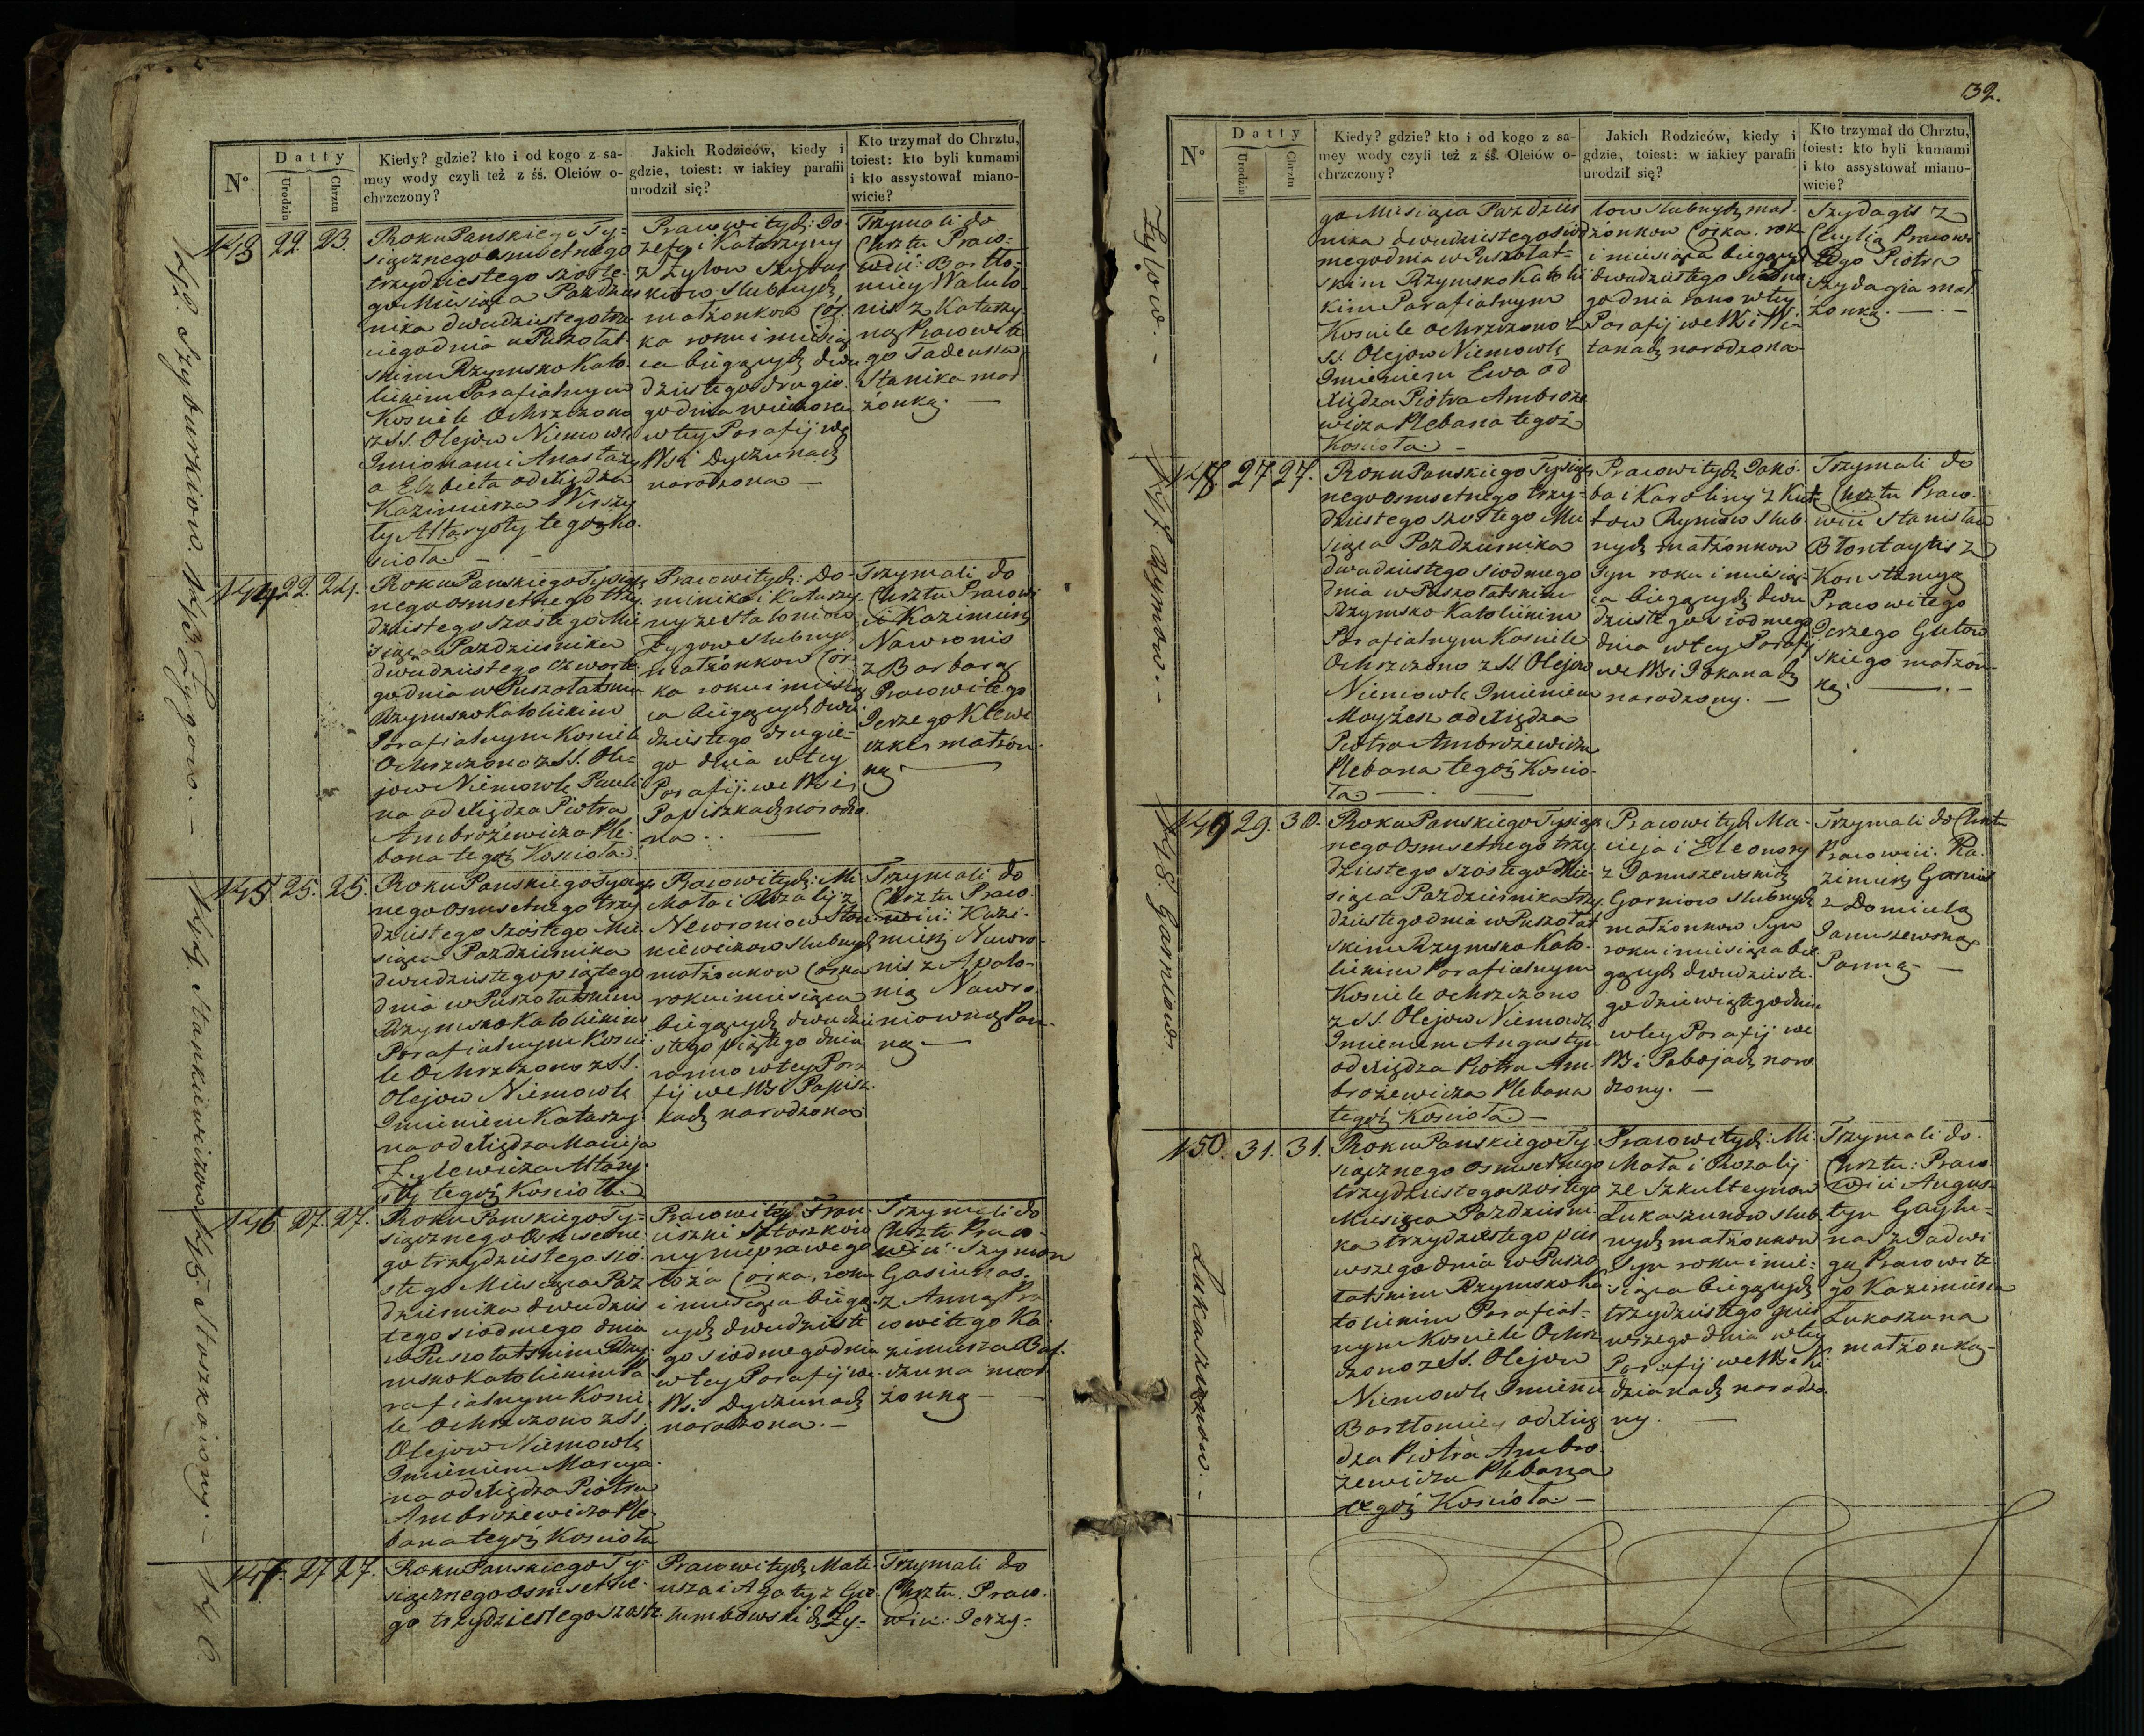 N°
Datty
Urodzin
Chrztu
Kiedy? gdzie? kto i od kogo z sa-
mey wody czyli też z śś. Oleiów o-
chrzczony?
Jakich Rodziców, kiedy i
gdzie, toiest: w iakiey parafii
urodził się?
Kto trzymał do Chrztu,
toiest: kto byli kumami
i kto assystował miano-
wicie?
143 22. 23.
Roku Panskiego Ty-
siącznego osmsetnego
trzydziestego szoste-
go Miesiąca Paździer
nika dwudziestego trze-
ciego dnia w Puszołat
skim Rzymsko Kato-
lickim Parafialnym
Kosciele Ochrzczono
z SS. Olejow Niemowle
Imionami Anastazy
a Elzbieta od Xiędza
Kazimierza
ty Altarysty tegoż Ko-
scioła
Pracowitych: Jo-
zefa i Katarzyny
z Zylow
slubnych
małżonkow Cor-
ka roku i miesią
ca bieżących dwu
dziestego drugie-
go dnia
w tey Parafij we
Wsi Dyczunach
narodzona
Trzymali do
Chrztu Praco-
wici: Bartło-
miey
nis z Katarzy
ną Pracowite
go Tadeusza
Stanika mał
żonką.
144 22. 24.
Roku Panskiego Tysiącz
nego osmsetnego trzy
dziestego szostego Mie
siąca Pazdziernika
dwudziestego czwarte
go dnia w Puszołatskim
Rzymsko Katolickim
Parafialnym Kosciele
Ochrzczono z SS. Ole-
jow Niemowle Pauli
na od Xiędza Piotra
Ambrożewicza Ple-
bana tegoż Koscioła.
Pracowitych: Do-
minika i Katarzy-
ny
Zygow slubnych
małżonkow Cor-
ka roku i miesią
ca bieżących dwu
dziestego drugie-
go dnia w tey
Parafij we Wsi
Papiszkach narodzo
na.
Trzymali do
Chrztu Pracowi
ci Kazimierz
Nawronis
z Barbarą
Pracowitego
Jerzego
małżon-
ką
145 25. 25.
Roku Panskiego Tysiącz
nego osmsetnego trzy
dziestego szostego Mie
siąca Pazdziernika
dwudziestego piątego
dnia w Puszołatskim
Rzymsko Katolickim
Parafialnym Kosciele
le Ochrzczono z SS.
Olejow Niemowle
Imieniem Katarzy-
na od Xiędza Macieja
Zylewicza Altary-
sty tegoż Koscioła.
Pracowitych: Mi-
chała i Rozalij z
Newroniow Stan-
kiewiczow slubnych
małżonkow Corka
roku i miesiąca
bieżących dwudzie
stego piątego dnia
ranno w tey Para
fij we Wsi Papisz-
kach narodzona
Trzymali do
Chrztu Praco-
wici: Kazi-
mierz Nawro-
nis z Apolo-
nią Nawro-
niowną Pan-
ną
146 27. 27.
Roku Panskiego Ty-
siącznego osmsetne-
go trzydziestego szo-
stego Miesiąca Paz
dziernika dwudzies
tego siodmego dnia
w Puszołatskim Rzy-
msko Katolickim Pa
rafialnym Koscie-
le Ochrzczono z SS.
Olejow Niemowle
Imieniem Marcya-
na od Xiędza Piotra
Ambrożewicza Ple-
bana tegoż Koscioła
Pracowitey Fran-
ciszki
ny nieprawego
łoża Corka, roku
i miesiąca bieżą-
cych dwudzieste
go siodmego dnia
w tey Parafij we
Wsi Dyczunach
narodzona.
Trzymali do
Chrztu Praco-
wici: Szymon
Gasiunas
z Anną Pra
cowitego Ka-
zimierza
małżonką
147. 27 27.
Roku Panskiego Ty-
siącznego osmsetne-
go trzydziestego szoste
Pracowitych Mate-
usza i Agaty z
tumbowskich Zy-
Trzymali do
Chrztu: Praco-
wici: Jerzy-
132.
N°
Datty
Urodzin
Chrztu
Kiedy? gdzie? kto i od kogo z sa-
mey wody czyli też z śś. Oleiów o-
chrzczony?
Jakich Rodziców, kiedy i
gdzie, toiest: w iakiey parafii
urodził się?
Kto trzymał do Chrztu,
toiest: kto byli kumami
i kto assystował miano-
wicie?
Zylow.
go Miesiąca Pazdzier
nika dwudziestego siod
mego dnia w Puszołat-
skim Rzymsko Katolic
kim Parafialnym
Kosciele ochrzczono z
SS. Olejow Niemowle
Imieniem Ewa od
Xiędza Piotra Ambroże
wicza Plebana tegoż
Koscioła.
low slubnych mał-
żonkow Corka, roku
i miesiąca bieżących
dwudziestego siodme
go dnia rano w tey
Parafij we Wsi Wi
tanach narodzona
Szydagis z
Cecylią Pracowi
tego Piotra
Szydagia mał
żonką.
148 27 27.
Rymow.
Roku Panskiego Tysiącz
nego osmsetnego trzy-
dziestego szostego Mie
siąca Pazdziernika
dwudziestego siodmego
dnia w Puszołatskim
Rzymsko Katolickim
Parafialnym Kosciele
Ochrzczono z SS Olejow
Niemowle Imieniem
Moyżesz od Xiędza
Piotra Ambrożewicza
Plebana tegoż Koscio-
ła
Pracowitych Jakó-
ba i Karoliny z
Rymow slub-
nych małżonkow
Syn roku i miesią-
ca bieżących dwu
dziestego siodmego
dnia w tey Parafij
we Wsi
narodzony.
Trzymali do
Chrztu Praco-
wici Stanisław
z
Konstancyą
Pracowitego
Jerzego Gutow
skiego małżon-
ką.
149 29. 30.
148. Garniow.
Roku Panskiego Tysiącz
nego osmsetnego trzy
dziestego szostego Mie-
siąca Pazdziernika trzy-
dziestego dnia w Puszołat
skim Rzymsko Kato-
lickim Parafialnym
Kosciele ochrzczono
z SS. Olejow Niemowle
Imieniem Augustyn
od Xiędza Piotra Am-
brożewicza Plebana
tegoż Koscioła.
Pracowitych Ma-
cieja i Eleonory
z Januszewskich
Garniow slubnych
małżonkow Syn
roku i miesiąca bie
żących dwudzieste-
go dziewiątego dnia
w tey Parafij we
Wsi Pabojach naro
dzony.
Trzymali do Chrztu
Pracowici: Ka-
zimierz Garnis
z Domicelą
Januszewską
Panną
150. 31. 31.
Lukaszunow.
Roku Panskiego Ty-
siącznego osmsetnego
trzydziestego szostego
Miesiąca Pazdzierni
ka trzydziestego pier
wszego dnia w Puszo
łatskim Rzymsko Ka-
tolickim Parafial-
nym Kosciele Ochrz
czono ze SS. Olejow
Niemowle Imieniem
Bartłomiey od Xię
dza Piotra Ambro-
żewicza Plebana
tegoż Koscioła
Pracowitych: Mi-
chała i Rozalij
ze Szkulteynow
Łukaszunow slub
nych małżonkow
Syn roku i mie-
siąca bieżących
trzydziestego pier
wszego dnia w tey
Parafij we Wsi
dzianach narodzo
ny.
Trzymali do
Chrztu: Praco-
wici Augus-
tyn
nas z Jadwi
gą Pracowite-
go Kazimierza
Łukaszuna
małżonką